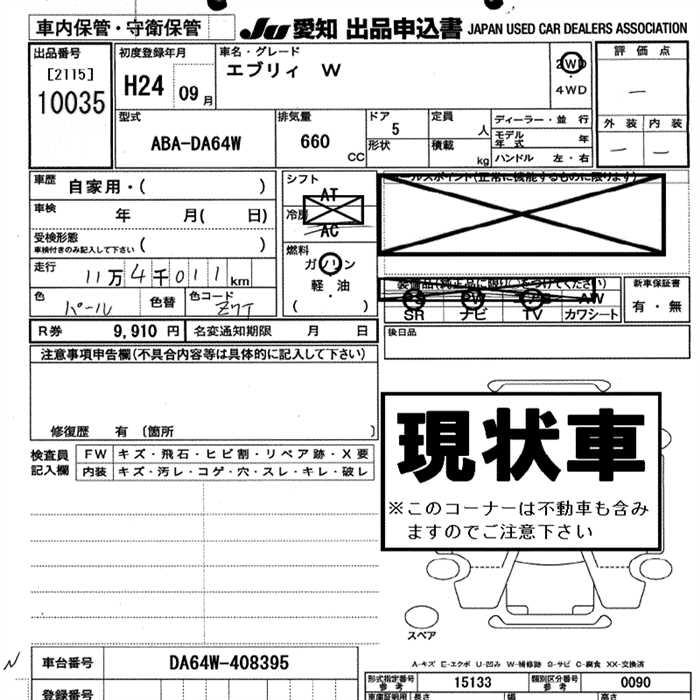 車内保管・守衛保管
JU 愛知 出品申込書 JAPAN USED CAR DEALERS ASSOCIATION
出品番号
[2115]
10035
初度登録年月
H24 09月
車名・グレード
エブリィ W
2WD
4WD
評価点
—
外装 内装
— —
型式
ABA-DA64W
排気量
660 CC
ドア
5
形状
定員
人
積載
kg
ディーラー・並行
モデル年式 年
ハンドル 左・右
車歴 自家用・( )
車検 年 月( 日)
受検形態
車検付きのみ記入して下さい ( )
走行 11万4千011km
色 パール 色替 色コード Z7T
R券 9,910 円 名変通知期限 月 日
シフト
AT
冷房
AC
燃料
ガソリン
軽・油
( ・ )
セールスポイント(正常に機能するものに限ります)
装備品(純正品に限り○をつけてください)
PS PW エアB AW
SR ナビ TV カワシート
新車保証書
有・無
後日品
注意事項申告欄(不具合内容等は具体的に記入して下さい)
修復歴 有 〔箇所 〕
検査員記入欄
FW キズ・飛石・ヒビ割・リペア跡・X要
内装 キズ・汚レ・コゲ・穴・スレ・キレ・破レ
現状車
※このコーナーは不動車も含みますのでご注意下さい
スペア
A-キズ E-エクボ U-凹み W-補修跡 S-サビ C-腐食 XX-交換済
N
車台番号 DA64W-408395
登録番号
形式指定番号 参考 15133
類別区分番号 参考 0090
車庫証明用 長さ 幅 高さ